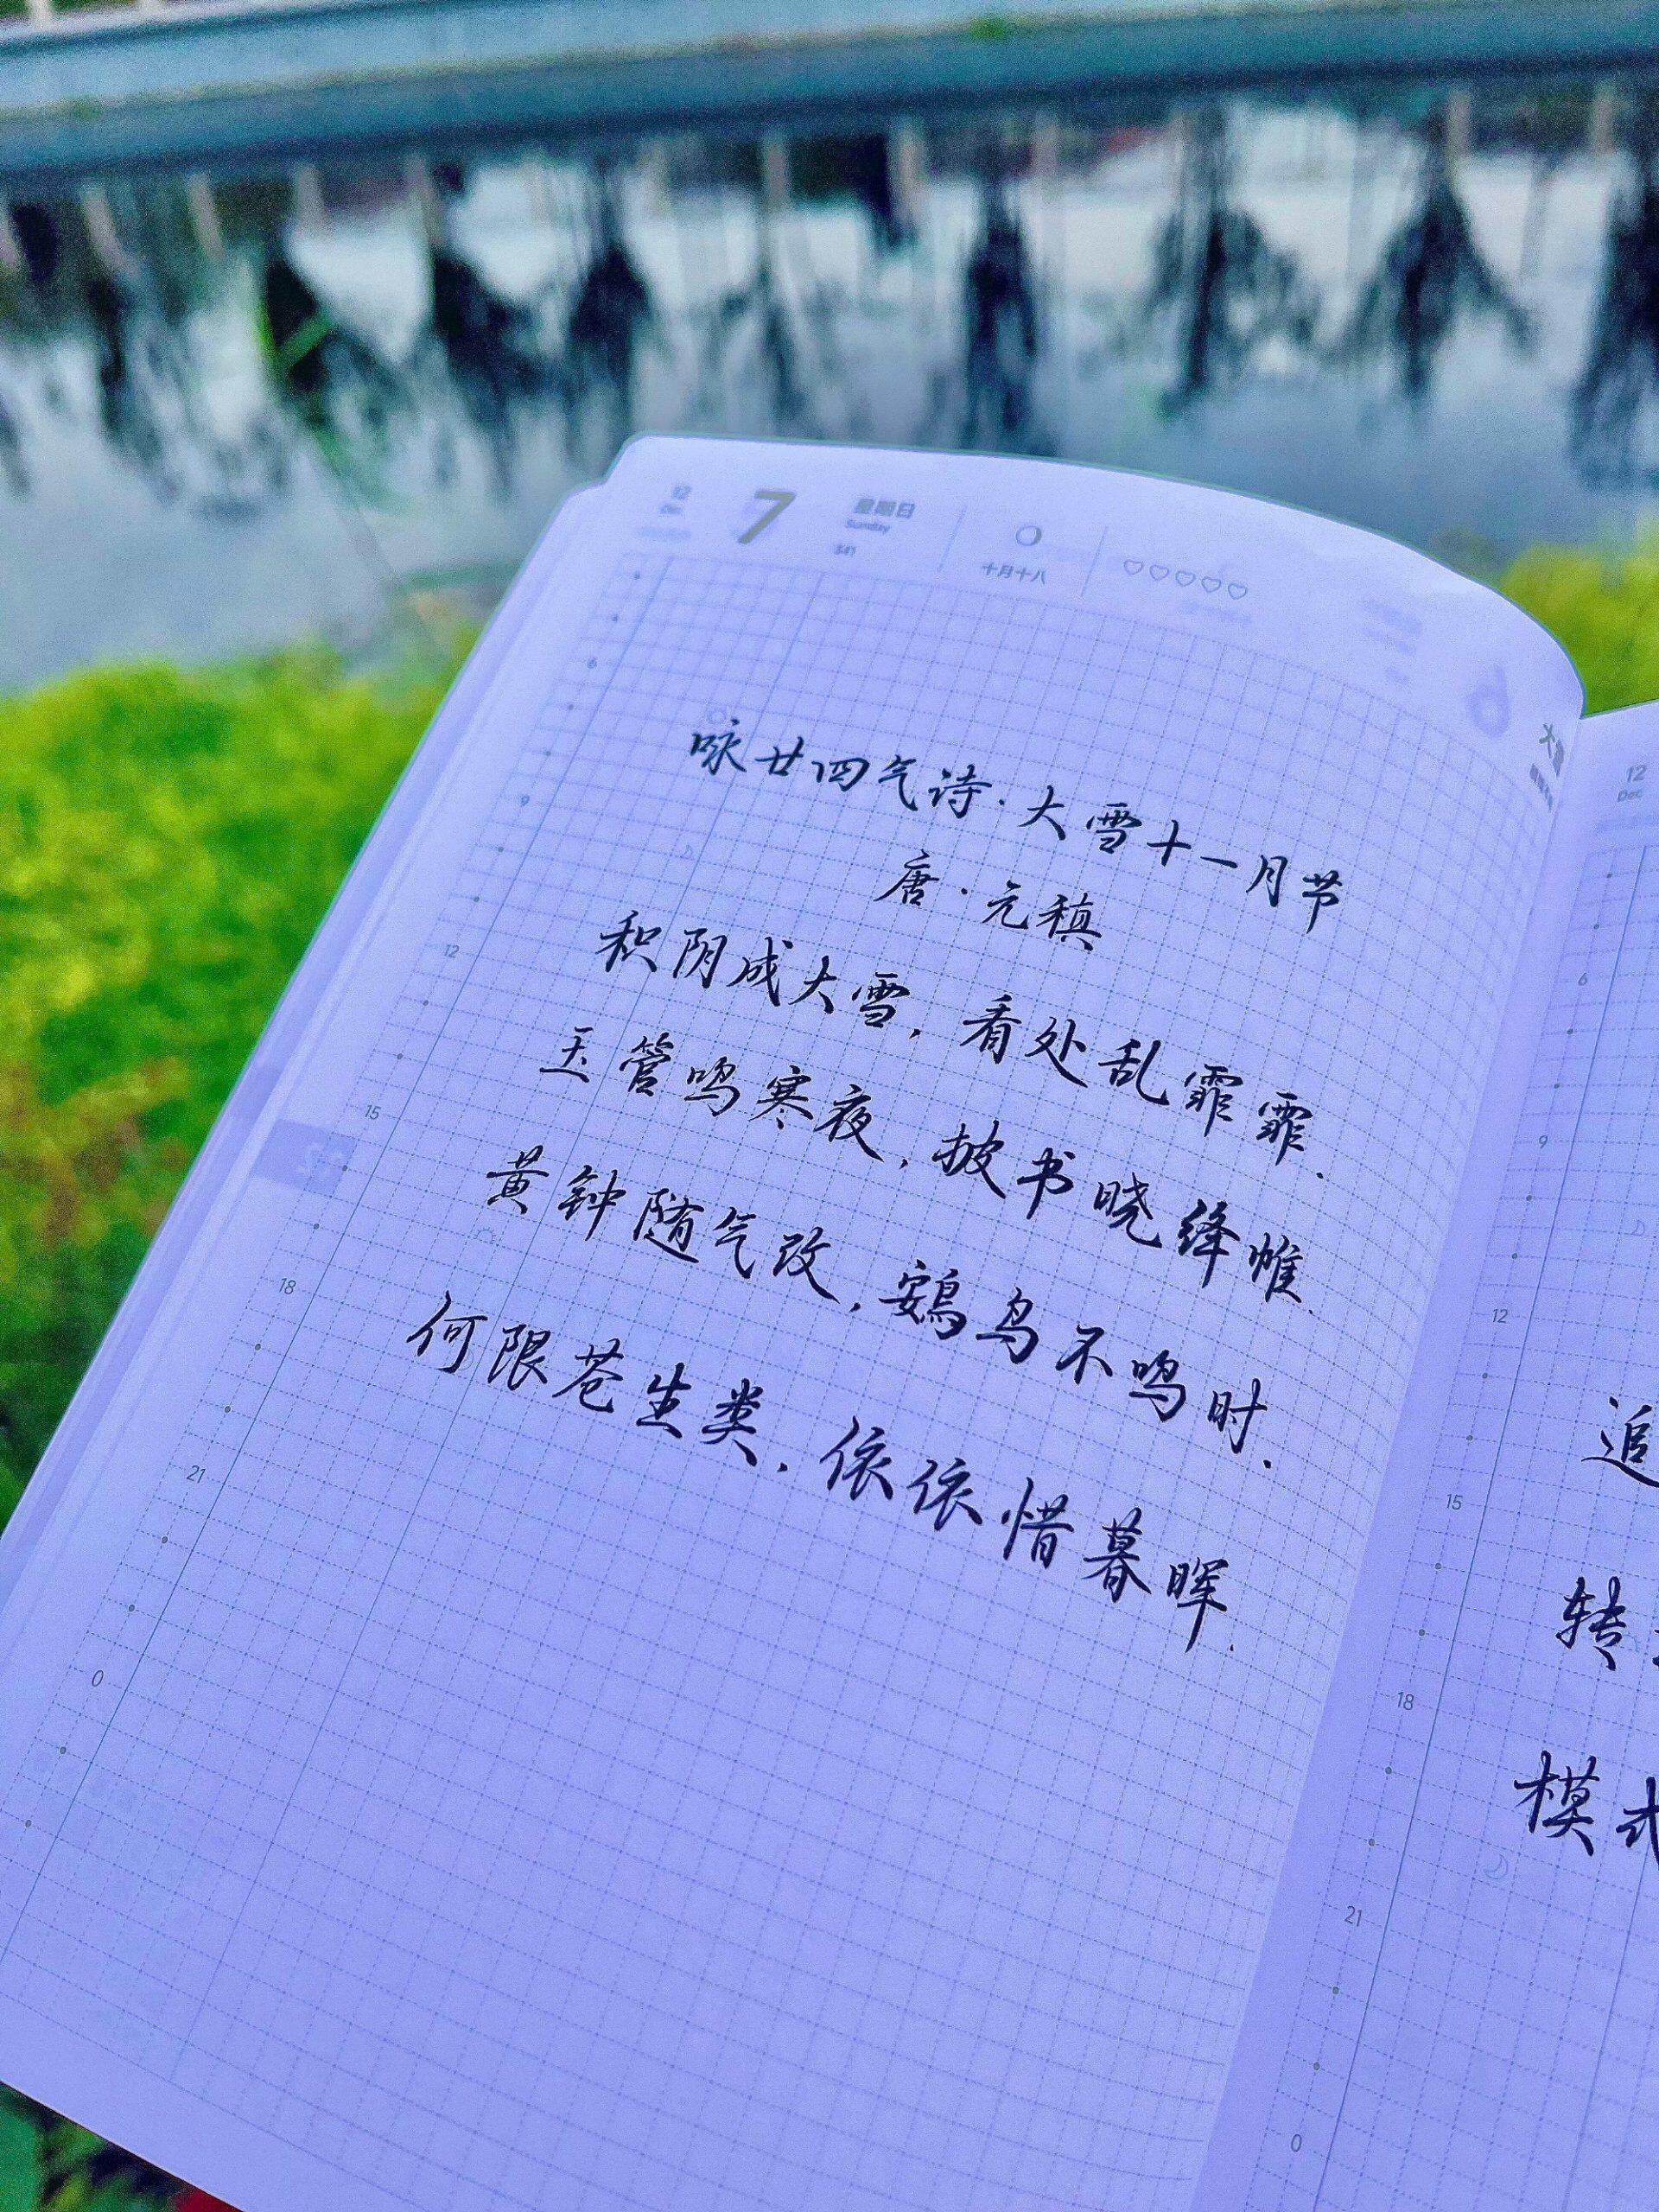 12
Dec
7
星期日
Sunday
341
十月十八
咏廿四气诗·大雪十一月节
唐·元稹
积阴成大雪，看处乱霏霏.
玉管鸣寒夜，披书晓绛帷.
黄钟随气改，鴳鸟不鸣时.
何限苍生类，依依惜暮晖.
6
9
12
15
18
21
0
大雪
12
Dec
6
9
12
15
18
21
0
追
转
模式